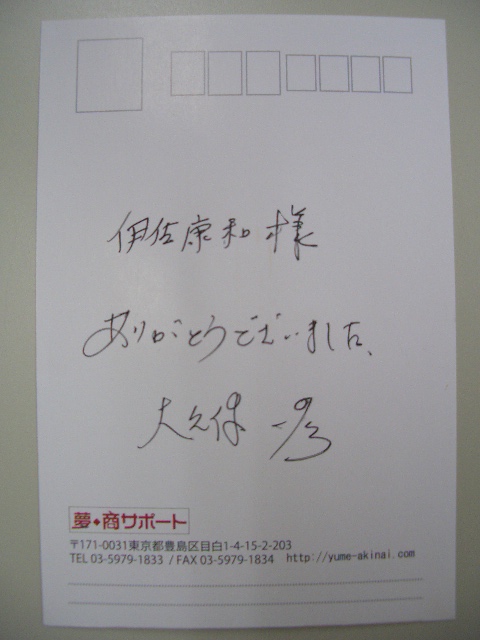 伊佐康和 様
ありがとうございました、
大久保 一彦
夢◆商サポート
〒171-0031東京都豊島区目白1-4-15-2-203
TEL 03-5979-1833 / FAX 03-5979-1834 http://yume-akinai.com